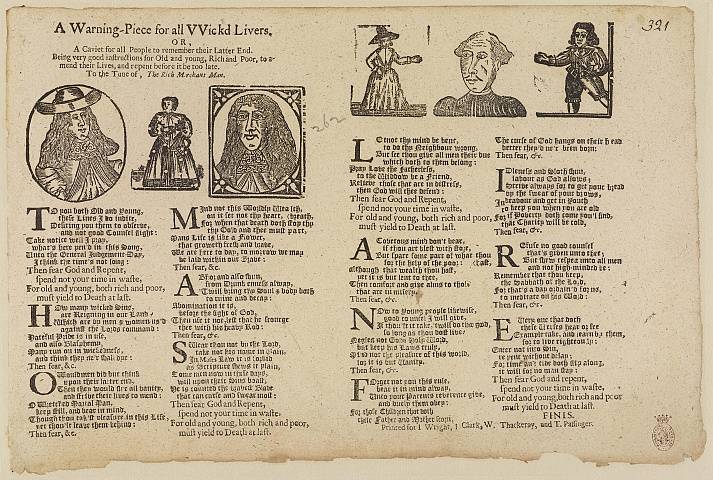 A Warning-Piece for all VVickd Livers,
OR,
A Caviet for all People to remember their Latter End.
Being very good instructions for Old and young, Rich and Poor, to a-
mend their Lives, and repent before it be too late.
To the Tune of, The Rich Merchant Man.
TO you both Old and Young,
these Lines I do indite,
Desiring you them to observe,
and not good Counsel slight:
Take notice well I pray,
what's here pen'd in this Song,
Unto the General Judgement-Day,
I think the time's not long:
Then fear God and Repent,
spend not your time in waste,
For old and young, both rich and poor,
must yield to Death at last.
HOw many wicked Sins,
are Reigning in our Land,
Which are by men & women us'd
against the Lords command:
Hateful Pride is in use,
and also Blasphemy,
Many run on in wickedness,
and think they ne'r shall
Then fear, &c.
O Would men did but think
upon their latter end,
Then they would sin and vanity,
and strive their lives to mend:
O Wretched Mortal Man,
keep still, and bear in mind,
Though thou tak'st pleasure in this Life,
yet thou'lt leave them behind:
Then fear, &c.
MInd not this Worldly Wealth,
on it set not thy heart,
For when that death doth stop thy breath,
thy Gold and thee must part,
Mans Life is like a Flower,
that groweth fresh and
We are here to day, to morrow we may
be laid within our Grave:
Then fear, &c.
ABhor and also shun,
from Drunkenness alway,
'Twill bring thy Soul & body both
to ruine and decay:
Abomination it is,
before the sight of God,
Then use it not lest that he scourge
thee with his heavy Rod:
Then fear, &c.
SWear thou not by the Lord,
take not his name in vain,
In Moses Law it is forbid
as Scripture shews it plain,
Some men now in these days,
will upon their Sins boast,
He is counted the bravest Blade
that can curse and swear most:
Then fear God and Repent,
spend not your time in waste,
For old and young, both rich and poor,
must yield to Death at last.
262
LEt not thy mind be bent,
to do thy Neighbour wrong,
But see thou give all men their due
which doth to them belong:
Pray Love the Fatherless,
to the Widdow be a Friend,
Relieve those that are in distress,
then God will thee defend:
Then fear God and Repent,
spend not your time in waste,
For old and young, both rich and poor,
must yield to Death at last.
A Covetous mind don't bear,
if thou art blest with store,
But spare some part of what thou hast
for the help of the poor:
Although that wealth thou hast,
yet it is but lent to thee,
Then comfort and give alms to those
that are in misery:
Then fear, &c.
NOw to Young people likewise,
good counsel I will give,
If thou'lt it take, 'twill do thee good,
so long as thou dost live:
Neglect not Gods Holy Word,
but keep his Laws truly,
Mind not the pleasure of this world,
for it is but Vanity.
Then fear, &c.
FOrget not you this rule,
bear it in mind alway,
Unto your Parents reverence give,
and duely them obey:
For those Children that doth
their Father and Mother scorn,
The curse of God hangs on their head
better they'd ne'r been born:
Then fear, &c.
IDleness and Sloth shun,
labour as God allows;
Strive alway for to get your bread
by the sweat of your brows,
Indeavour and get in Youth
to keep you when you are old
For if Poverty doth come you'l find,
that Charity will be cold,
Then fear, &c.
REfuse no good counsel
that's given unto thee;
But shew respect unto all men
and not high-minded be:
Remember that thou keep,
the Sabbath of the Lord,
For that's a day ordain'd for us,
to meditate on his Word:
Then fear, &c.
EVery one that doth
these Verses hear or see
Example take, and learn by them,
for to live righteously:
Enter not into Sin,
repent without delay;
For time and tide doth slip along,
it will for no man stay:
Then fear God and repent,
spend not your time in waste,
For old and young, both rich and poor
must yield to Death at last.
FINIS.
Printed for J. Wright, J. Clark, W. Thackeray, and T. Passinger.
321